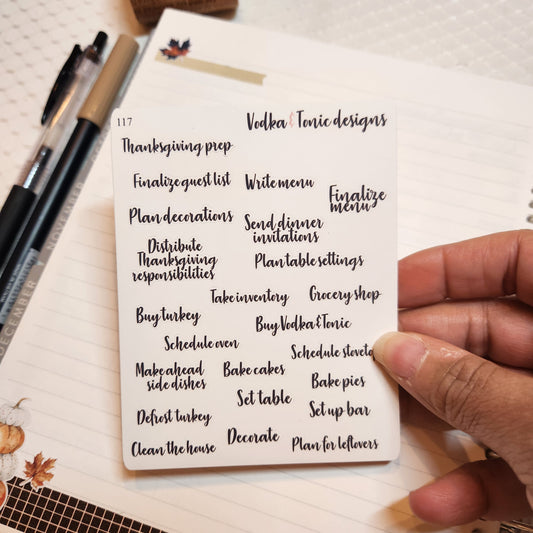 117
Vodka & Tonic designs
Thanksgiving prep
Finalize guest list
Write menu
Finalize
menu
Plan decorations
Send dinner
invitations
Distribute
Thanksgiving
responsibilities
Plan table settings
Take inventory
Grocery shop
Buy turkey
Buy Vodka & Tonic
Schedule oven
Schedule
Make ahead
side dishes
Bake cakes
Bake pies
Set table
Set up bar
Defrost turkey
Decorate
Clean the house
Plan for leftovers
DECEMBER
NOVEMBER